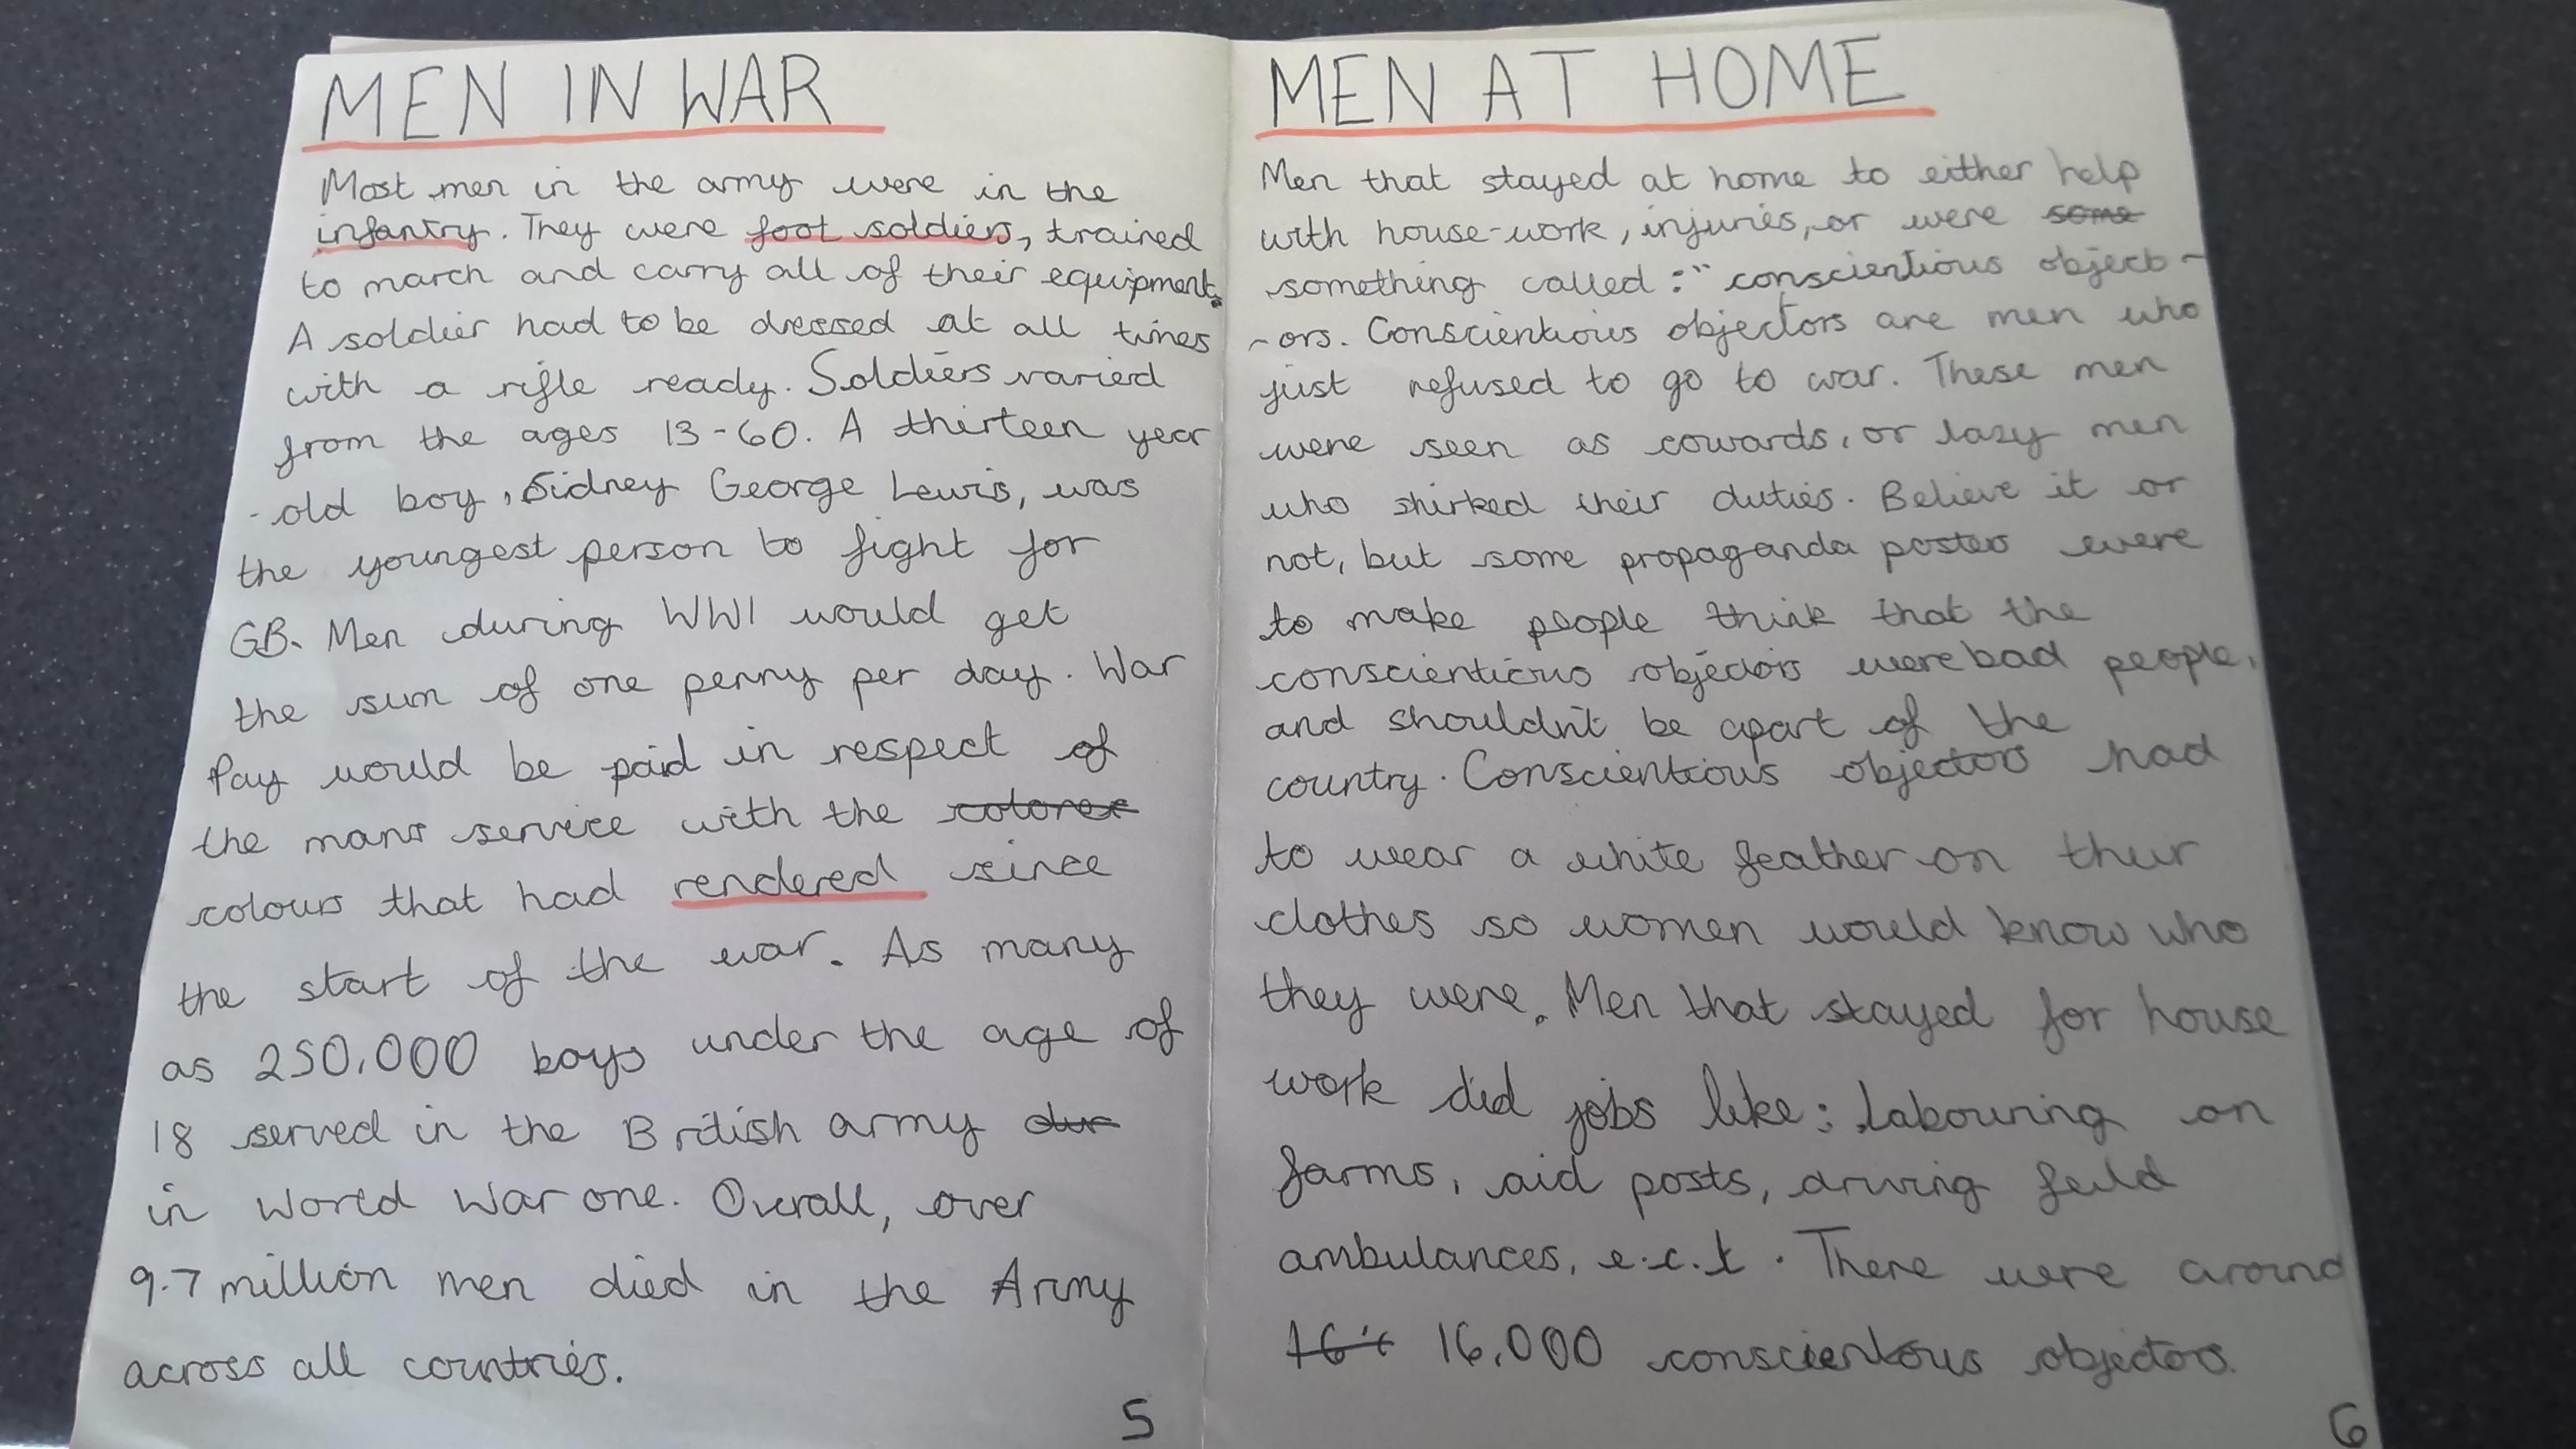 MEN IN WAR
Most men in the army were in the
infantry. They were foot soldiers, trained
to march and carry all of their equipment.
A soldier had to be dressed at all times
with a rifle ready. Soldiers varied
from the ages 13-60. A thirteen year
-old boy, Sidney George Lewis, was
the youngest person to fight for
GB. Men during WW1 would get
the sum of one penny per day. War
Pay would be paid in respect of
the mans service with the
colours that had rendered since
the start of the war. As many
as 250,000 boys under the age of
18 served in the British army dur
in World War one. Overall, over
9.7 million men died in the Army
across all countries.
5
MEN AT HOME
Men that stayed at home to either help
with house-work, injuries, or were some
something called: "conscientious object-
-ors. Conscientious objectors are men who
just refused to go to war. These men
were seen as cowards, or lazy men
who shirked their duties. Believe it or
not, but some propaganda posters were
to make people think that the
conscientious objectors were bad people,
and shouldn't be apart of the
country. Conscientious objectors had
to wear a white feather on their
clothes so women would know who
they were. Men that stayed for house
work did jobs like: Labouring on
farms, aid posts, driving feild
ambulances, e.c.t. There were around
16,000 conscientous objectors.
6